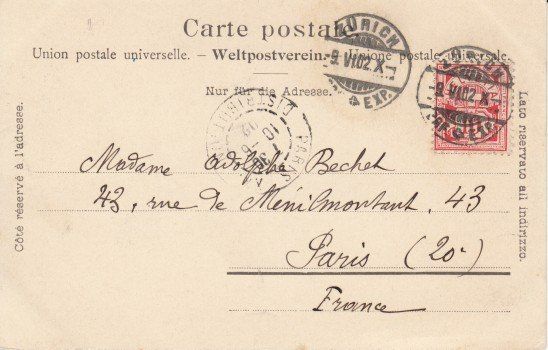 Carte postale.
Union postale universelle. – Weltpostverein. – Unione postale universale.
Nur für die Adresse.
Côté réservé à l'adresse.
Lato riservato all indirizzo.
ZÜRICH
9.VI.02.X
EXP.
9.VI.02.X
EXP.
PARIS
DISTRIBUTION
10
02
Madame Adolphe Bechet
43, rue de Ménilmontant, 43
Paris (20e)
France